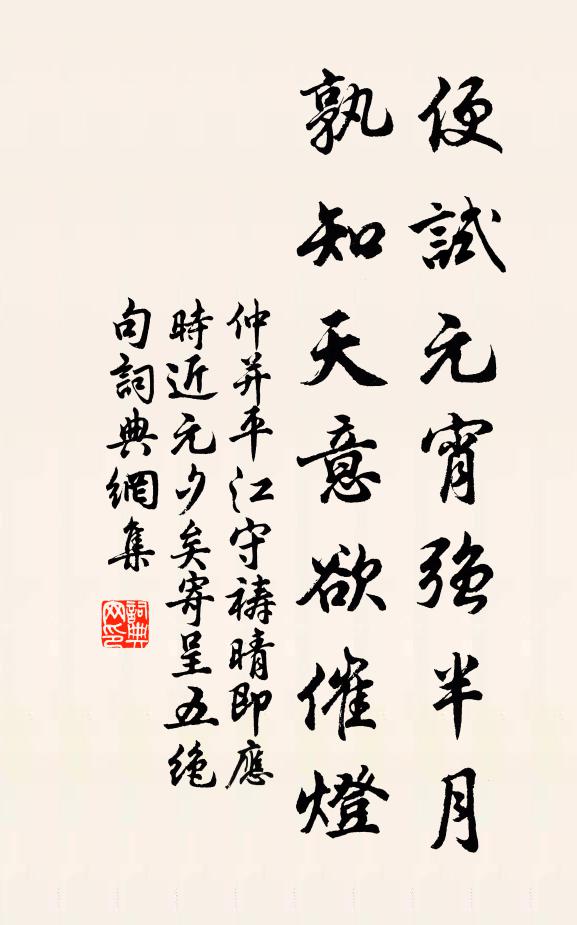 便試元宵強半月
孰知天意欲催燈
仲并平江守禱晴即應
時近元夕矣寄呈五絕
句詞典網集
詞典
网印